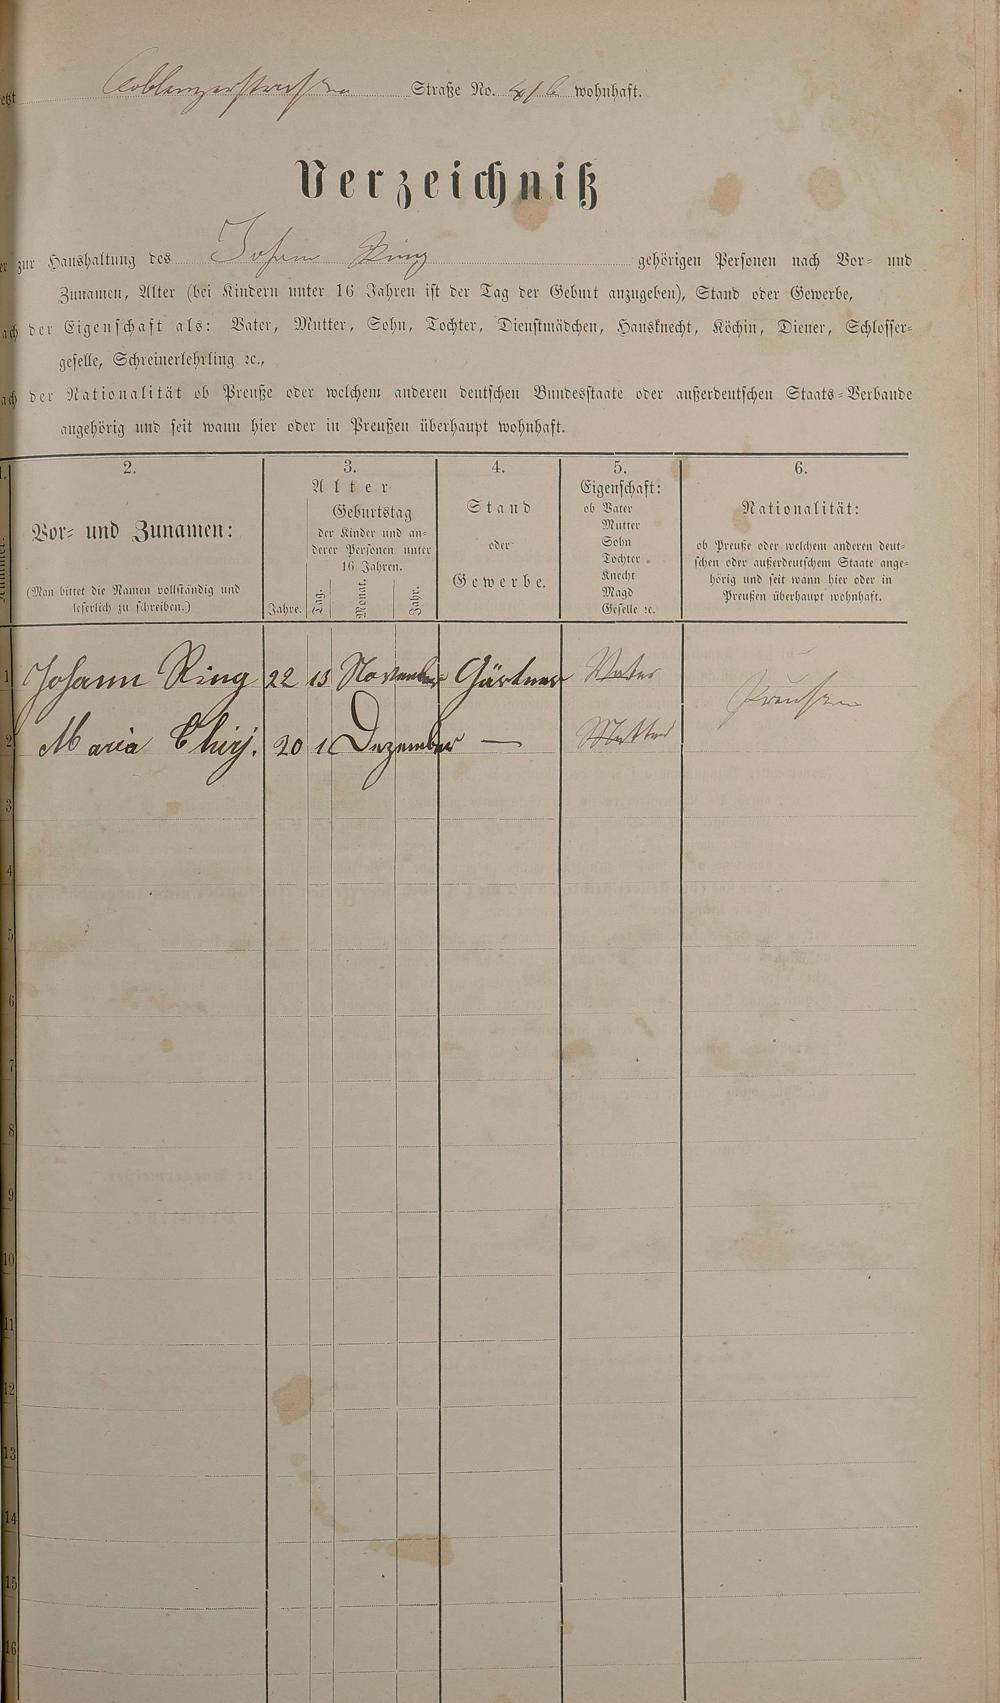 etzt Coblenzerstrasse Straße No. wohnhaft.
Verzeichniß
er zur Haushaltung des Johann Ring gehörigen Personen nach Vor- und
Zunamen, Alter (bei Kindern unter 16 Jahren ist der Tag der Geburt anzugeben), Stand oder Gewerbe,
ach der Eigenschaft als: Vater, Mutter, Sohn, Tochter, Dienstmädchen, Hausknecht, Köchin, Diener, Schlosser-
geselle, Schreinerlehrling ꝛc.,
ach der Nationalität ob Preuße oder welchem anderen deutschen Bundesstaate oder außerdeutschen Staats-Verbande
angehörig und seit wann hier oder in Preußen überhaupt wohnhaft.
1.
Nummer.
2.
Vor- und Zunamen:
(Man bittet die Namen vollständig und
leserlich zu schreiben.)
3.
Alter
Geburtstag
der Kinder und an-
derer Personen unter
16 Jahren.
Jahre. Tag. Monat. Jahr.
4.
Stand
oder
Gewerbe.
5.
Eigenschaft:
ob Vater
Mutter
Sohn
Tochter
Knecht
Magd
Geselle ꝛc.
6.
Nationalität:
ob Preuße oder welchem anderen deut-
schen oder außerdeutschem Staate ange-
hörig und seit wann hier oder in
Preußen überhaupt wohnhaft.
1 Johann Ring 22 13 November Gärtner Vater Preussen
2 Maria 20 1 Dezember — Mutter
3
4
5
6
7
8
9
10
11
12
13
14
15
16